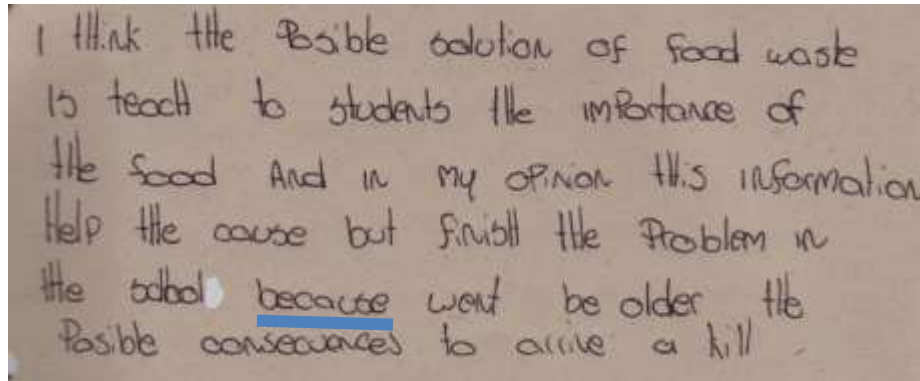 I think the Posible solution of food waste
Is teach to students the importance of
the food And in my opinion this information
Help the cause but finish the Problem in
the school because went be older the
Posible consecuences to arrive a kill.